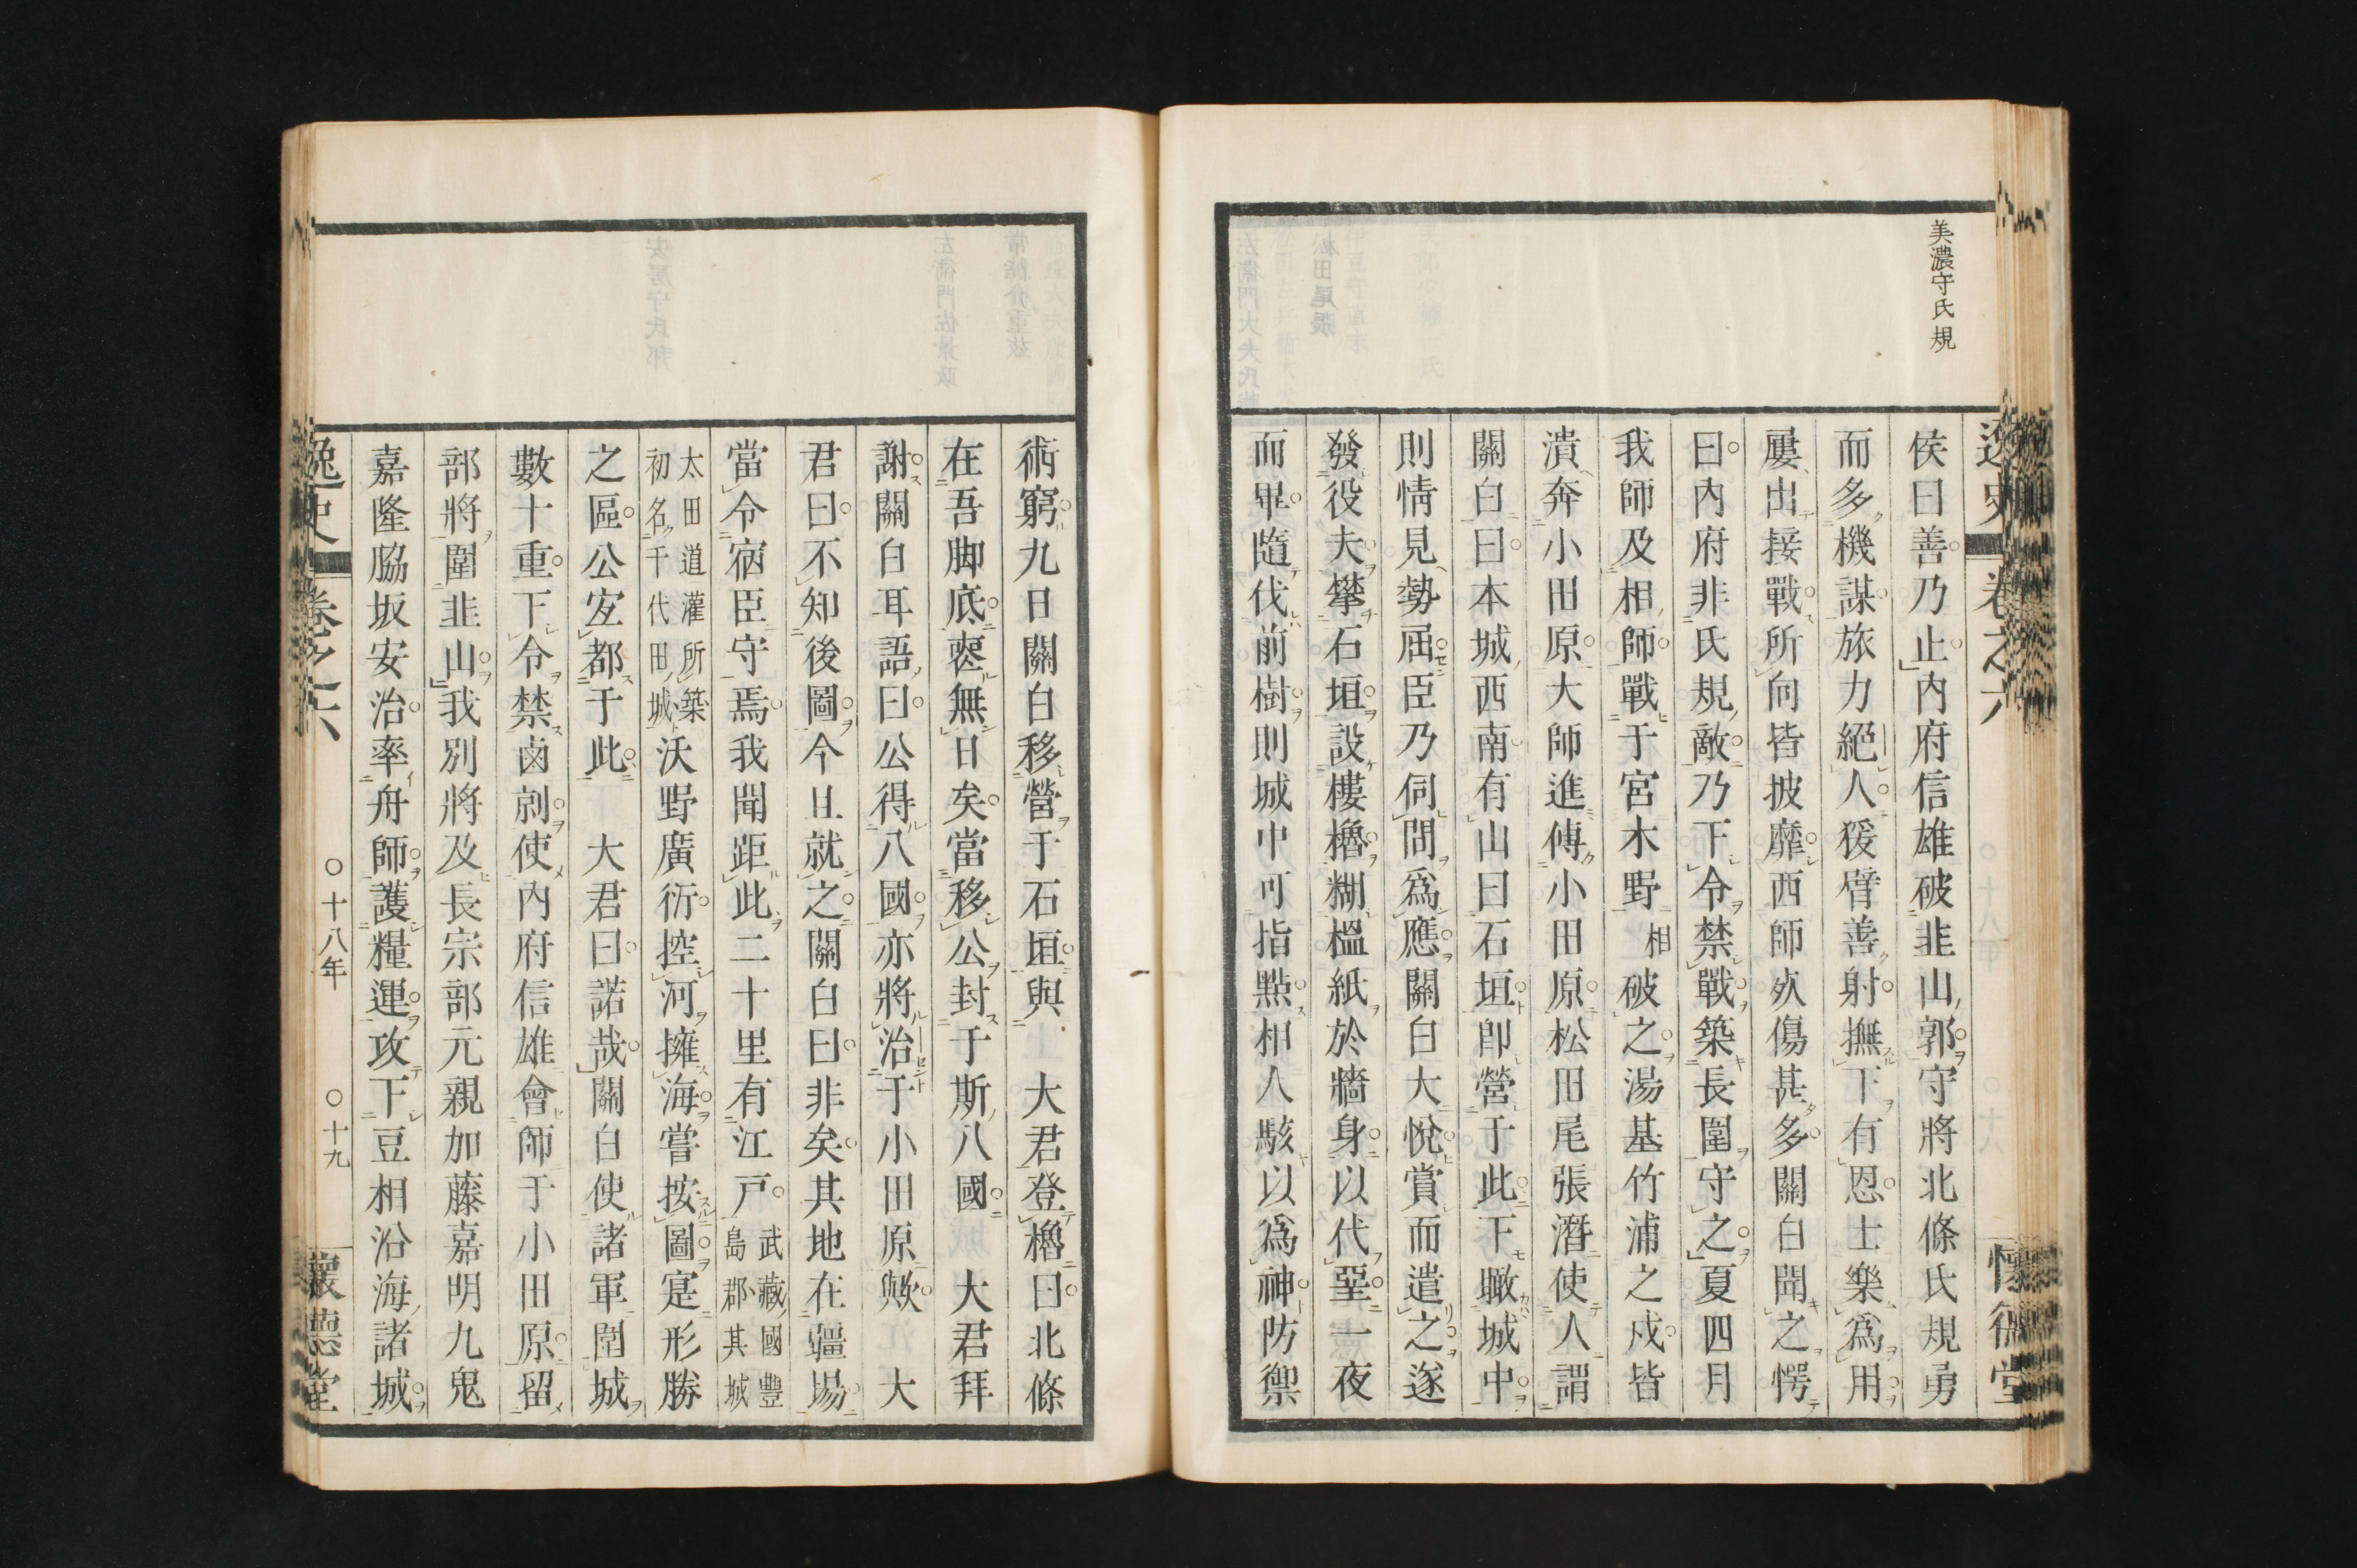 美濃守氏規
逸史 卷之六 懷德堂
侯曰善乃止内府信雄破韭山郭守將北條氏規勇
而多機謀旅力絕人猨臂善射撫下有恩士樂爲用
屢出接戰所向皆披靡西師死傷甚多關白聞之愕
曰内府非氏規敵乃下令禁戰築長圍守之夏四月
我師及相師戰于宮木野相破之湯基竹浦之戍皆
潰奔小田原大師進傅小田原松田尾張潛使人謂
關白曰本城西南有山曰石垣卽營于此下瞰城中
則情見勢屈臣乃伺間爲應關白大悅賞而遣之遂
發役夫攀石垣設樓櫓糊榲紙於牆身以代堊一夜
而畢隨伐前樹則城中可指點相人駭以爲神防禦
術窮九日關白移營于石垣與 大君登櫓曰北條
在吾脚底喪無日矣當移公封于斯八國 大君拜
謝關白耳語曰公得八國亦將治于小田原歟 大
君曰不知後圖今且就之關白曰非矣其地在疆場
當令宿臣守焉我聞距此二十里有江戸武藏國豐島郡其城
太田道灌所築初名千代田城沃野廣衍控河擁海嘗按圖寔形勝
之區公宜都于此 大君曰諾哉關白使諸軍圍城
數十重下令禁鹵剠使内府信雄會師于小田原留
部將圍韭山我別將及長宗部元親加藤嘉明九鬼
嘉隆脇坂安治率舟師護糧運攻下豆相沿海諸城
逸史 卷之六 ○十八年 ○十九 懷德堂